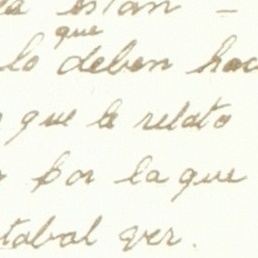 estan -
que
lo deben hac
que le relato
por la que
tabal ver.